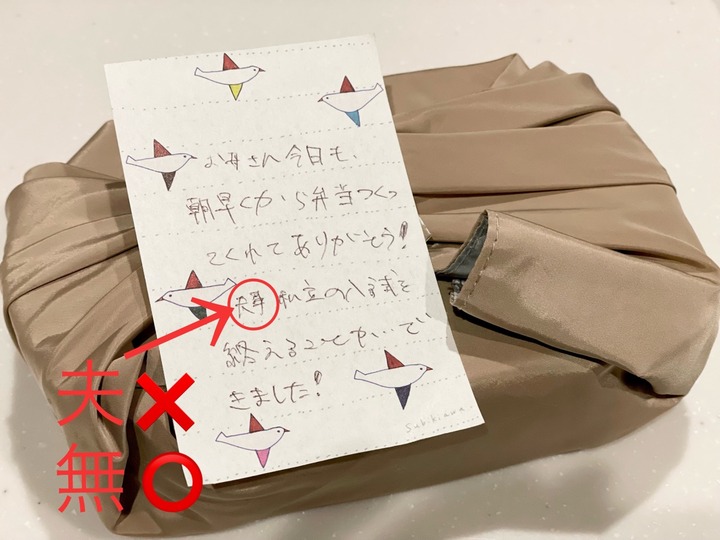 お母さん今日も、
朝早くから弁当つくっ
てくれてありがとう!
夫事私立の入試を
終えることが…で
きました!
Subikiawa
夫❌
無⭕